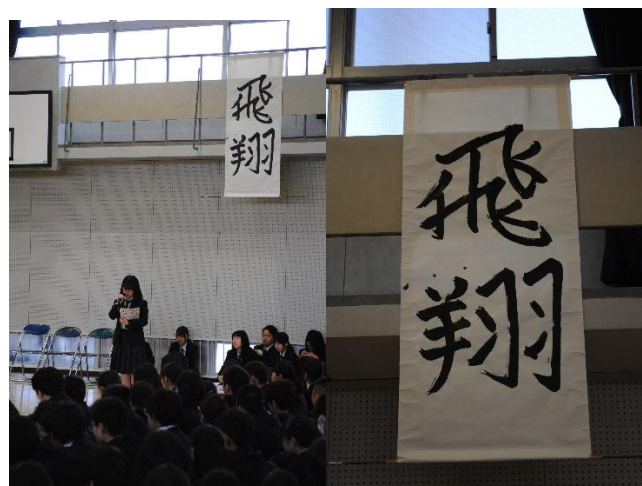 飛
翔
飛
翔